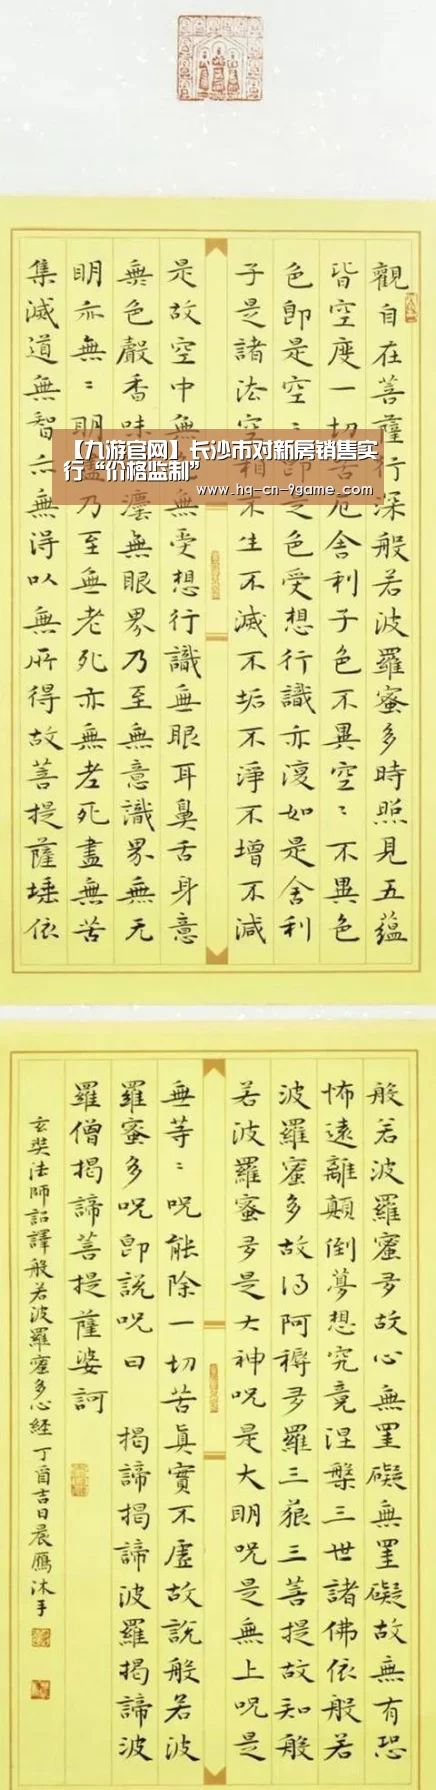 【九游官网】长沙市对新房销售实
行“价格监制”
www.hg-cn-9game.com
觀自在菩薩行深般若波羅蜜多時照見五蘊
皆空度一切苦厄舍利子色不異空〻不異色
色即是空〻即是色受想行識亦復如是舍利
子是諸法空相不生不滅不垢不淨不增不減
是故空中無色無受想行識無眼耳鼻舌身意
無色聲香味灋無眼界乃至無意識界無无
明亦無〻明盡乃至無老死亦無老死盡無苦
集滅道無智亦無得以無所得故菩提薩埵依
般若波羅蜜多故心無罣礙無罣礙故無有恐
怖遠離顛倒夢想究竟涅槃三世諸佛依般若
波羅蜜多故得阿耨多羅三藐三菩提故知般
若波羅蜜多是大神呪是大明呪是無上呪是
無等〻呪能除一切苦真實不虛故說般若波
羅蜜多呪即說呪曰 揭諦揭諦波羅揭諦波
羅僧揭諦菩提薩婆訶
玄奘法師詔譯般若波羅蜜多心經 丁酉吉日晨鷹沐手